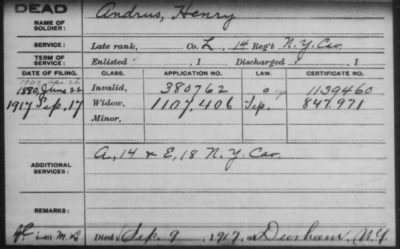 DEAD
NAME OF SOLDIER: Andrus, Henry
SERVICE: Late rank, Co. L, 14 Reg't N.Y. Cav.
TERM OF SERVICE: Enlisted , 1 Discharged , 1
DATE OF FILING. CLASS. APPLICATION NO. LAW. CERTIFICATE NO.
1880, June 22 Invalid, 380762 1139460
1917, Sep. 17 Widow, 1107.406 Sep. 847.971
Minor,
ADDITIONAL SERVICES: A, 14 & E, 18 N.Y. Cav.
REMARKS:
Died Sep. 9, 1917, at Durham, N.Y.